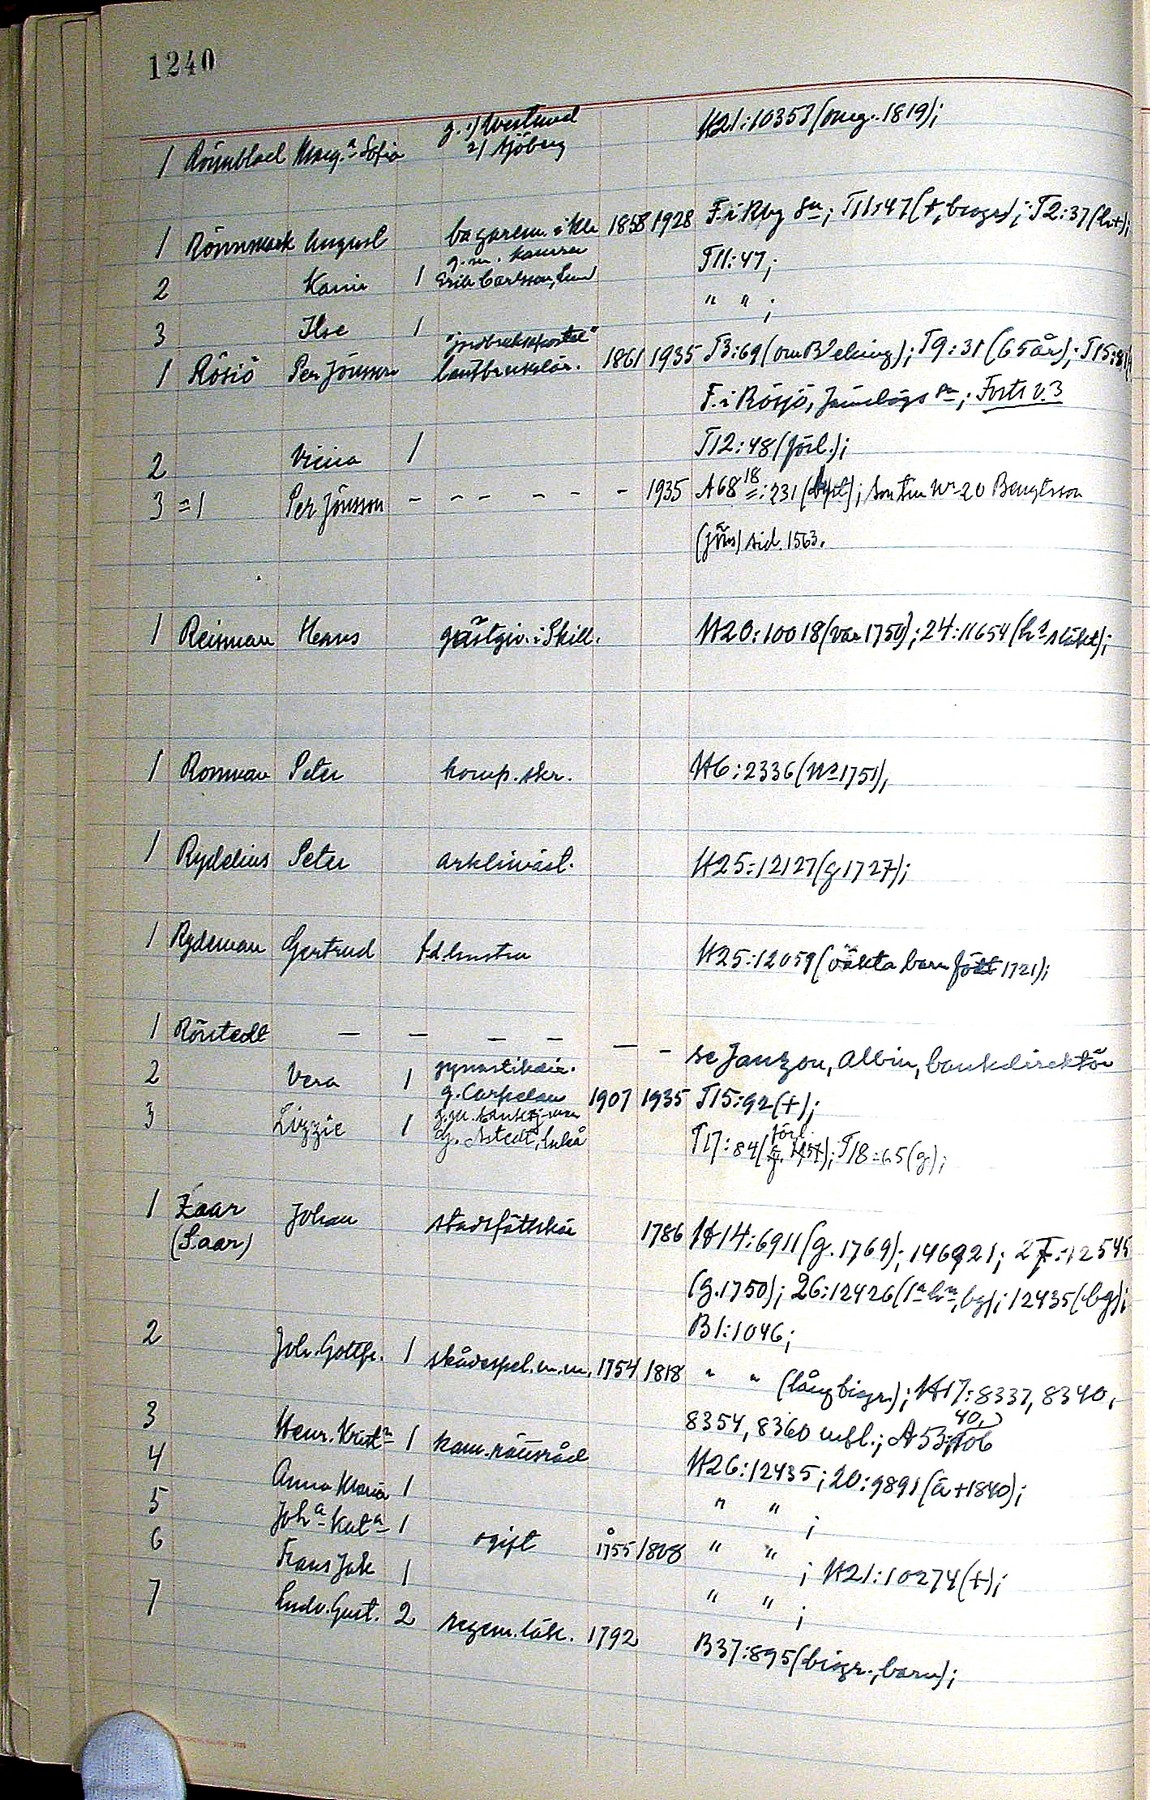 1240
1 Rönnblad Marg.a Sofia g. 1) Westrund 2) Sjöberg H21:10353 (omg. 1819);
1 Rönnmark August bagarem. i Kla 1858 1928 F. i Rby sn; T11:47 (†, biogr); T2:37
2 Karin 1 g.m. kamrer Erik Carlsson, Lund T11:47;
3 Ilse 1 " " ;
1 Rösiö Per Jönsson "jordbruksapostel" lantbrukslär. 1861 1935 T3:69 (om B'eking); T9:31 (65 år); T15:81
F. i Rösjö, sn; Forts v. 3
2 1 T12:48 (förl.);
3 =1 Per Jönsson - - - - - - - 1935 A68 18:231; son till No 20 Bengtsson
(Jöns) sid. 1563.
1 Reisman Hans gästgiv. i Skill. H20:10018 (var 1750); 24:11654 (hs släkt);
1 Ronman Peter komp. skr. H6:2336 (No 1751),
1 Rydelius Peter arklimäst. H25:12127 (g 1727);
1 Rydeman Gertrud f.d. hustru H25:12059 (oäkta barn fött 1721);
1 Rörstedt - - - - - - se Janzon, Albin, bankdirektör
2 Vera 1 gymnastikdir. g. Carpelan 1907 1935 T15:92 (†);
3 Lizzie 1 g. Åstedt, Luleå T17:84 (förl.); T18:65 (g);
1 Zaar Johan stadsfältskär 1786 H14:6911 (g. 1769); 146921; 27:12545
(Saar) (g. 1750); 26:12426 (1a hn, bg); 12435 (bg);
B1:1046;
2 Joh. Gottfr. 1 skådespel. m.m. 1754 1818 " " (lång biogr.); H17:8337, 8340,
8354, 8360 mfl.; A53:40,
3 Henr. Krist:n 1 kam. rättsråd H26:12435; 20:9891 (ä †1840);
4 Anna Maria 1 " " ;
5 Joh.a Kat.a 1 ogift 1755 1808 " " ; H21:10274 (†);
6 Frans Jak 1 " " ;
7 Ludv. Gust. 2 regem. läk. 1792 B37:895 (biogr., barn);